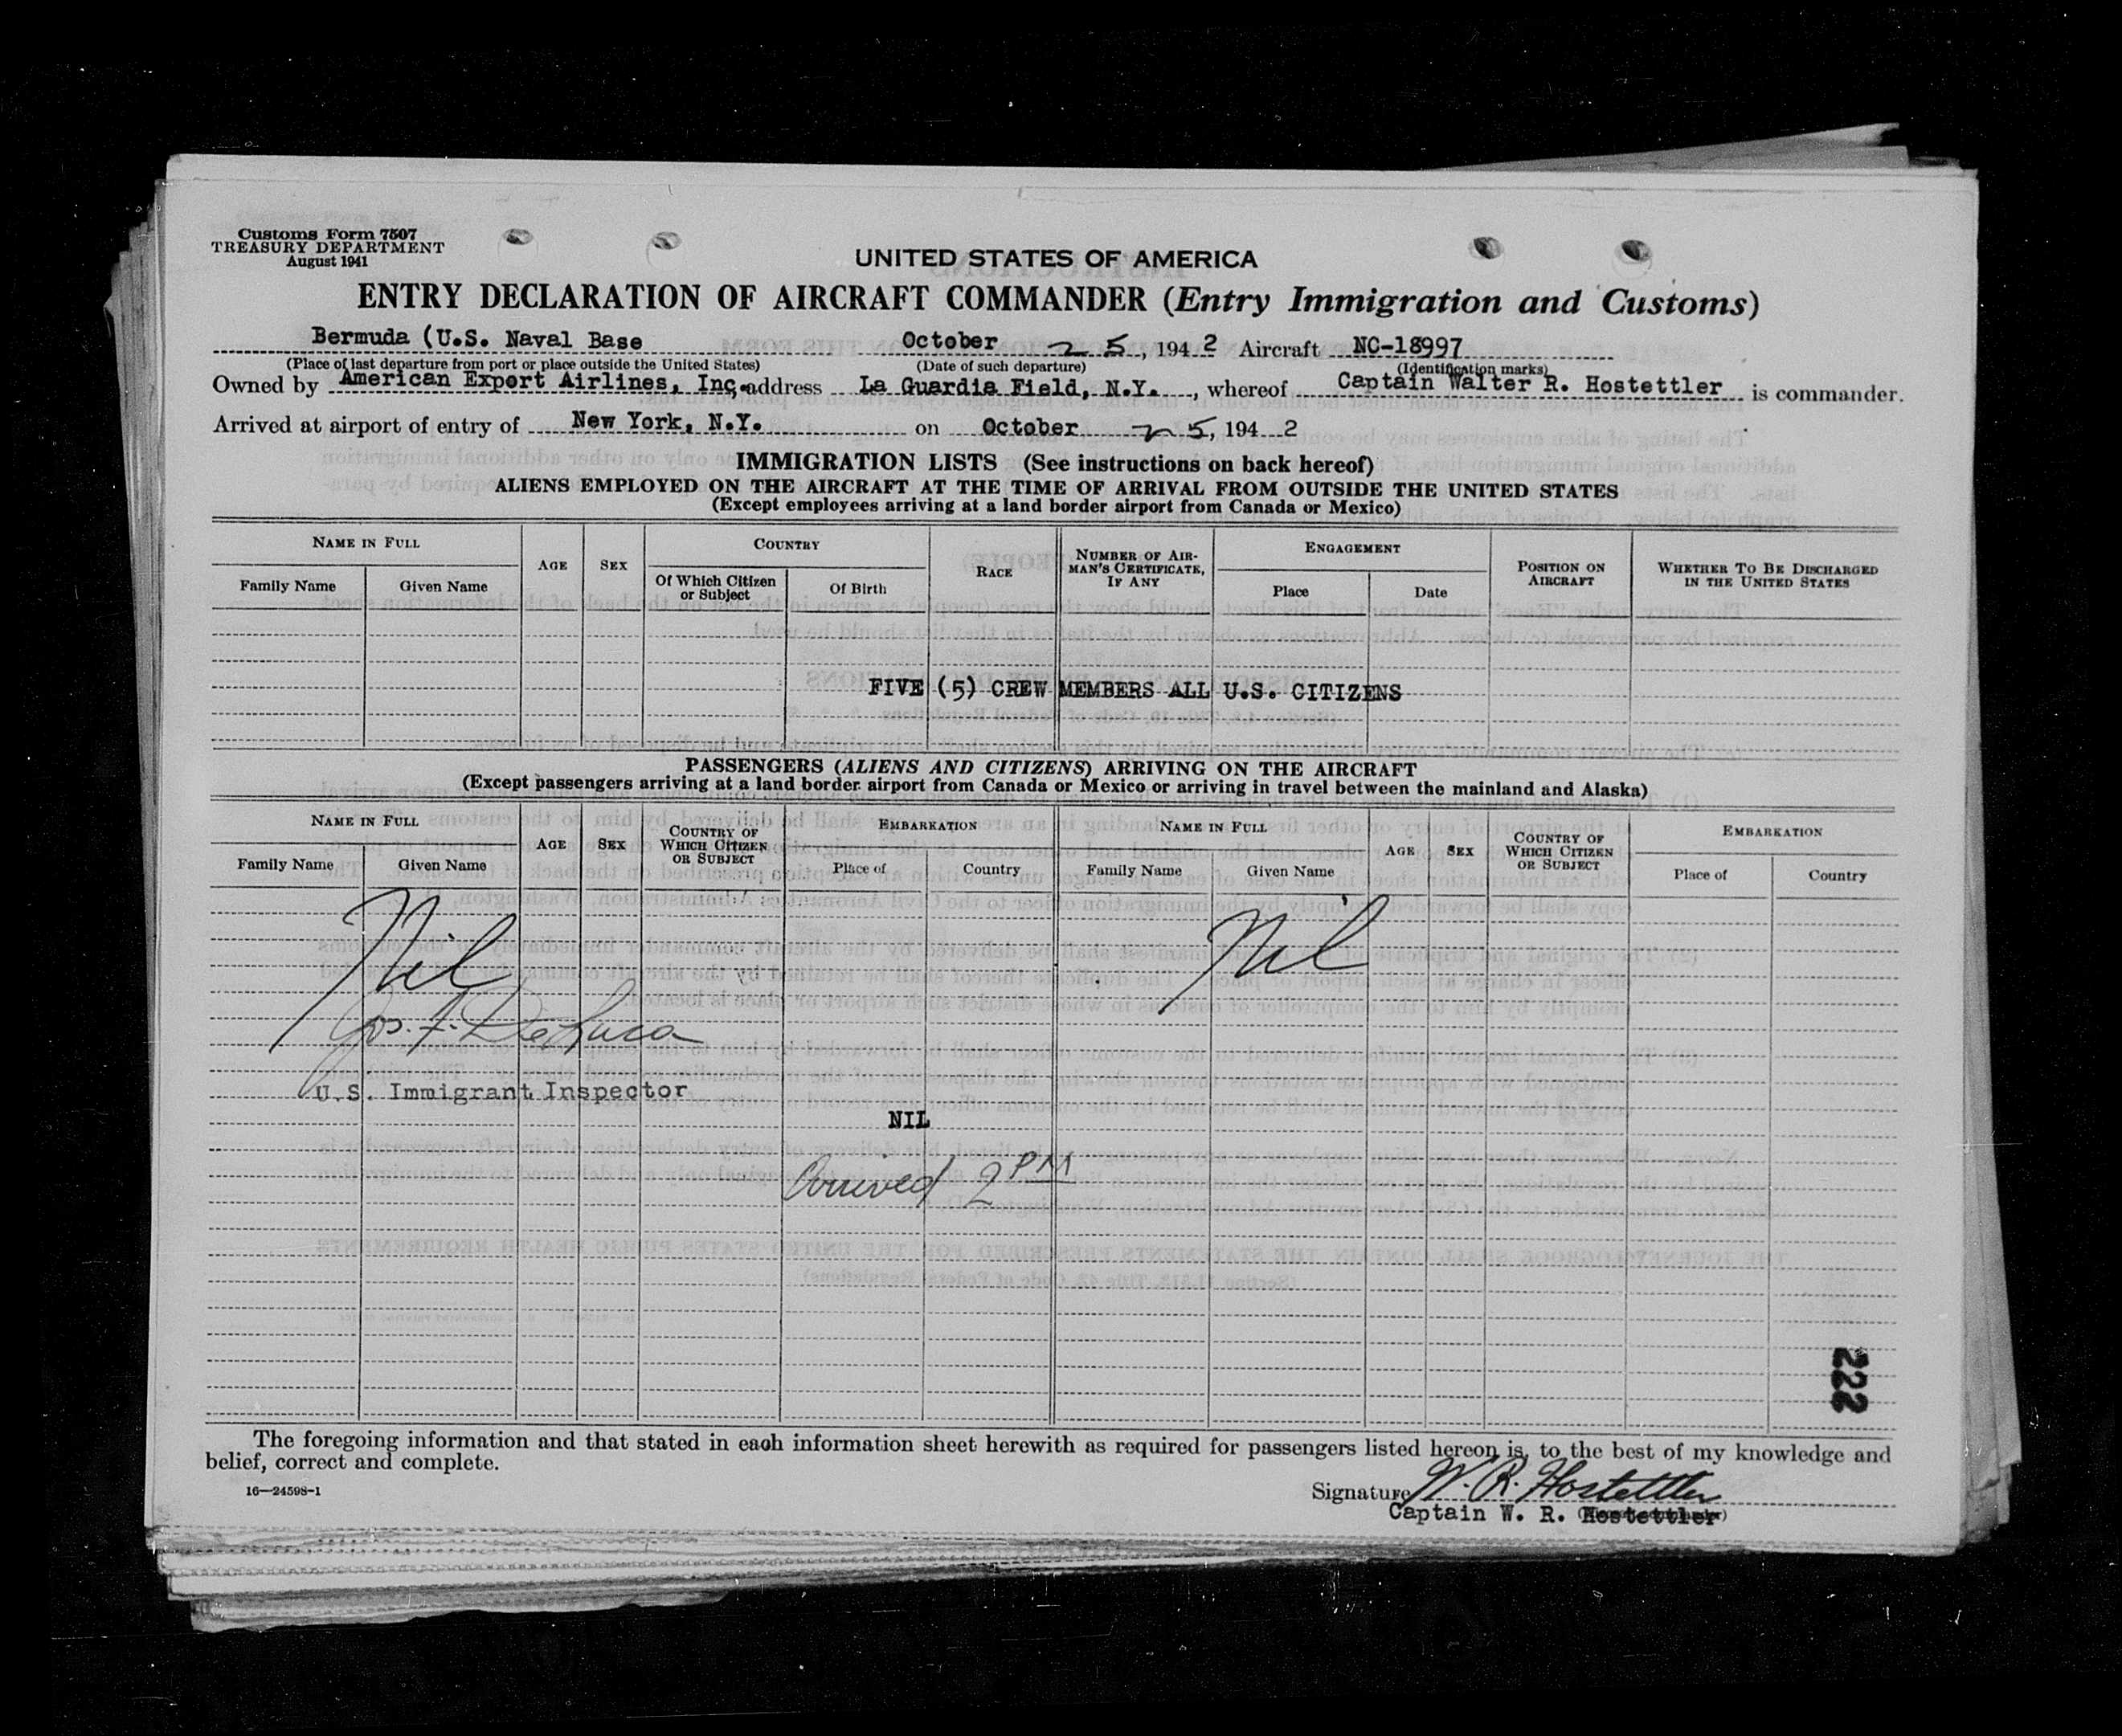 Customs Form 7507
TREASURY DEPARTMENT
August 1941
UNITED STATES OF AMERICA
ENTRY DECLARATION OF AIRCRAFT COMMANDER (Entry Immigration and Customs)
Bermuda (U.S. Naval Base October 25, 1942 Aircraft NC-18997
(Place of last departure from port or place outside the United States) (Date of such departure) (Identification marks)
Owned by American Export Airlines, Inc. address La Guardia Field, N.Y. , whereof Captain Walter R. Hostettler is commander.
Arrived at airport of entry of New York, N.Y. on October 25, 1942
IMMIGRATION LISTS (See instructions on back hereof)
ALIENS EMPLOYED ON THE AIRCRAFT AT THE TIME OF ARRIVAL FROM OUTSIDE THE UNITED STATES
(Except employees arriving at a land border airport from Canada or Mexico)
NAME IN FULL AGE SEX COUNTRY RACE NUMBER OF AIRMAN'S CERTIFICATE, IF ANY ENGAGEMENT POSITION ON AIRCRAFT WHETHER TO BE DISCHARGED IN THE UNITED STATES
Family Name Given Name Of Which Citizen or Subject Of Birth Place Date
FIVE (5) CREW MEMBERS ALL U.S. CITIZENS
PASSENGERS (ALIENS AND CITIZENS) ARRIVING ON THE AIRCRAFT
(Except passengers arriving at a land border airport from Canada or Mexico or arriving in travel between the mainland and Alaska)
NAME IN FULL AGE SEX COUNTRY OF WHICH CITIZEN OR SUBJECT EMBARKATION NAME IN FULL AGE SEX COUNTRY OF WHICH CITIZEN OR SUBJECT EMBARKATION
Family Name Given Name Place of Country Family Name Given Name Place of Country
Nil Nil
Jos. A. DeLuca
U.S. Immigrant Inspector
NIL
Arrived 2 PM
222
The foregoing information and that stated in each information sheet herewith as required for passengers listed hereon is, to the best of my knowledge and
belief, correct and complete.
16—24598-1
Signature W. R. Hostettler
Captain W. R. Hostettler